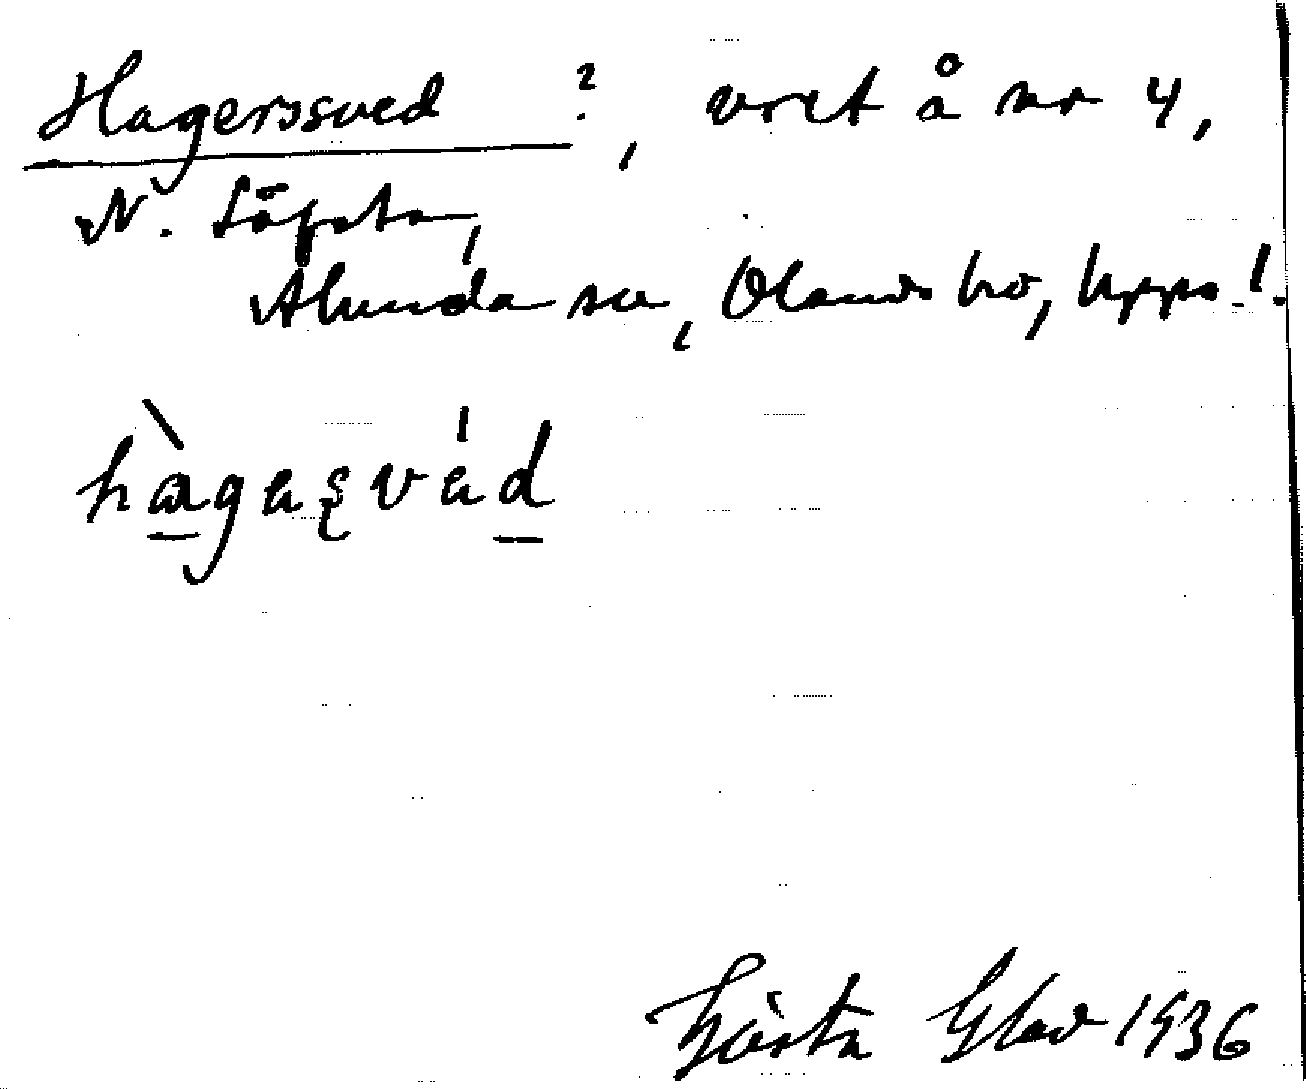 Hagerssved ?, vret å nr 4,
N. Löfsta,
Alunda sn, Olands hd, Uppl.
hàgaṣvád
Gösta Glad 1936